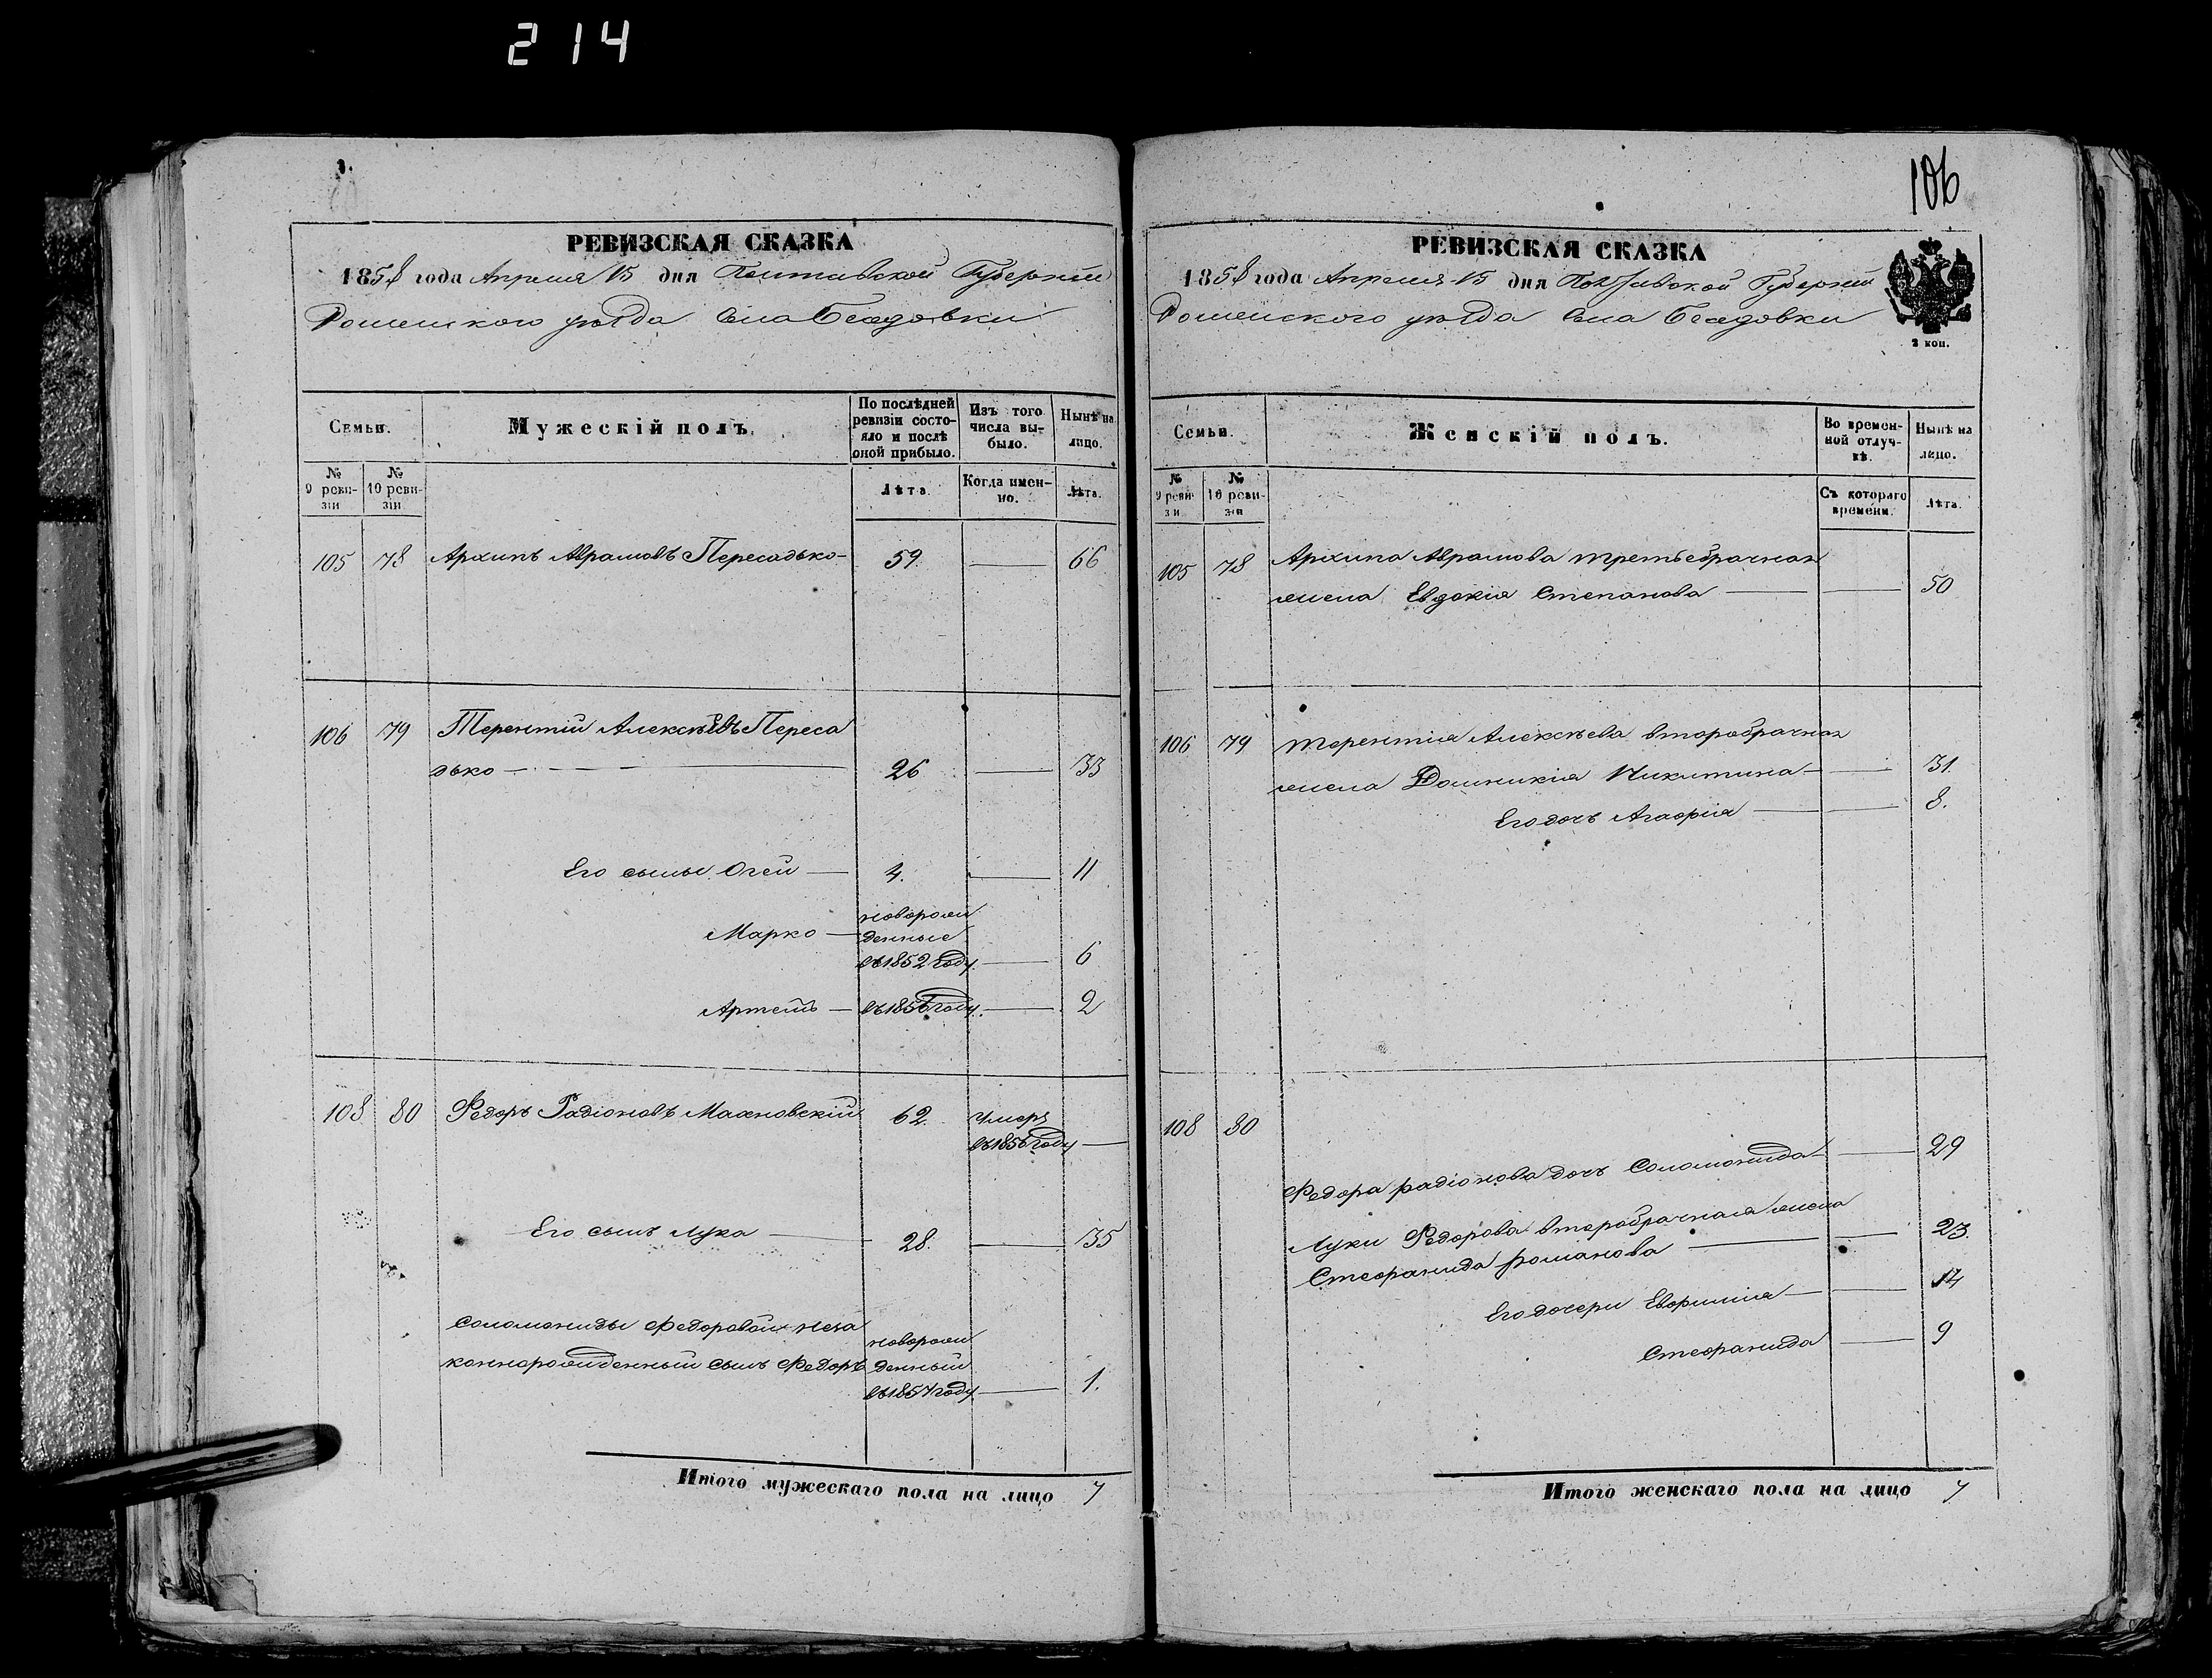 214
106
РЕВИЗСКАЯ СКАЗКА
1858 года Апреля 15 дня Полтавской Губерніи
Роменского уѣзда Села Беседовки
Семьи.
Мужескій полъ.
По послѣдней ревизіи состояло и послѣ оной прибыло.
Изъ того числа выбыло.
Нынѣ на лицо.
№ 9 ревизіи
№ 10 ревизіи
Лѣта.
Когда именно.
Лѣта.
105 78 Архипъ Аврамовъ Пересадько 59. 66
106 79 Терентій Алексѣевъ Переса
дько 26 33
Его сыны Огей 4. 11
новорож
Марко денные
въ 1852 году 6
Артемъ въ 1856 году. 2
108 80 Федоръ Радіоновъ Махновскій 62. умеръ
въ 1856 году
Его сынъ Лука 28. 35
Соломониды Федоровой неза новорож
коннорожденный сынъ Федоръ денный
въ 1857 году 1.
Итого мужескаго пола на лицо 7
РЕВИЗСКАЯ СКАЗКА
1858 года Апреля 15 дня Полтавской Губерніи
Роменского уѣзда Села Беседовки
2 коп.
Семьи.
Женскій полъ.
Во временной отлучкѣ.
Нынѣ на лицо.
№ 9 ревизіи
№ 10 ревизіи
Съ котораго времени.
Лѣта.
105 78 Архипа Аврамова третьебрачная
жена Евдокія Степанова 50
106 79 Терентія Алексѣева вторабрачная
жена Домникія Никитина 31.
Его дочь Агафія 8.
108 80
Федора Радіонова дочь Соломонида 29
Луки Федорова вторабрачная жена
Стефанида Романова 23.
Его дочери Евфимія 14
Стефанида 9
Итого женскаго пола на лицо 7